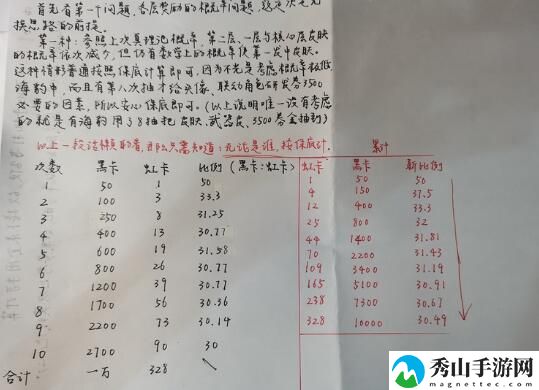 首先有第一个问题,各层奖励的概率问题,这是次宅无
换思路的前提。
第一种:参照上次真理记概率,第一层,一层与核心层皮肤
的概率依次减少,但仍有数学上的概率使第一发中皮肤。
这种情形普通按照保底计算即可,因为不光是考虑概率极低
海豹中,而且有第八次抽才给头像,联动角色研发券3500
必要的因素,所以安心保底即可。(以上说明唯一没有考虑
的就是有海豹用了8抽把皮肤、武器皮、3500券全抽到)
以上一段话懒的看,可以只需知道:无论是谁,按保底计.
累计
次数 黑卡 虹卡 比例(黑卡:虹卡) 虹卡 黑卡 新比例
1 50 1 50 1 50 50
2 100 3 33.3 4 150 37.5
3 250 8 31.25 12 400 33.3
4 400 13 30.77 25 800 32
5 600 19 31.58 44 1400 31.81
6 800 26 30.77 70 2200 31.43
7 1200 39 30.77 109 3400 31.19
8 1700 56 30.36 165 5100 30.91
9 2200 73 30.14 238 7300 30.67
10 2700 90 30 328 10000 30.49
合计 一万 328
秀山手游网
magnetche.com